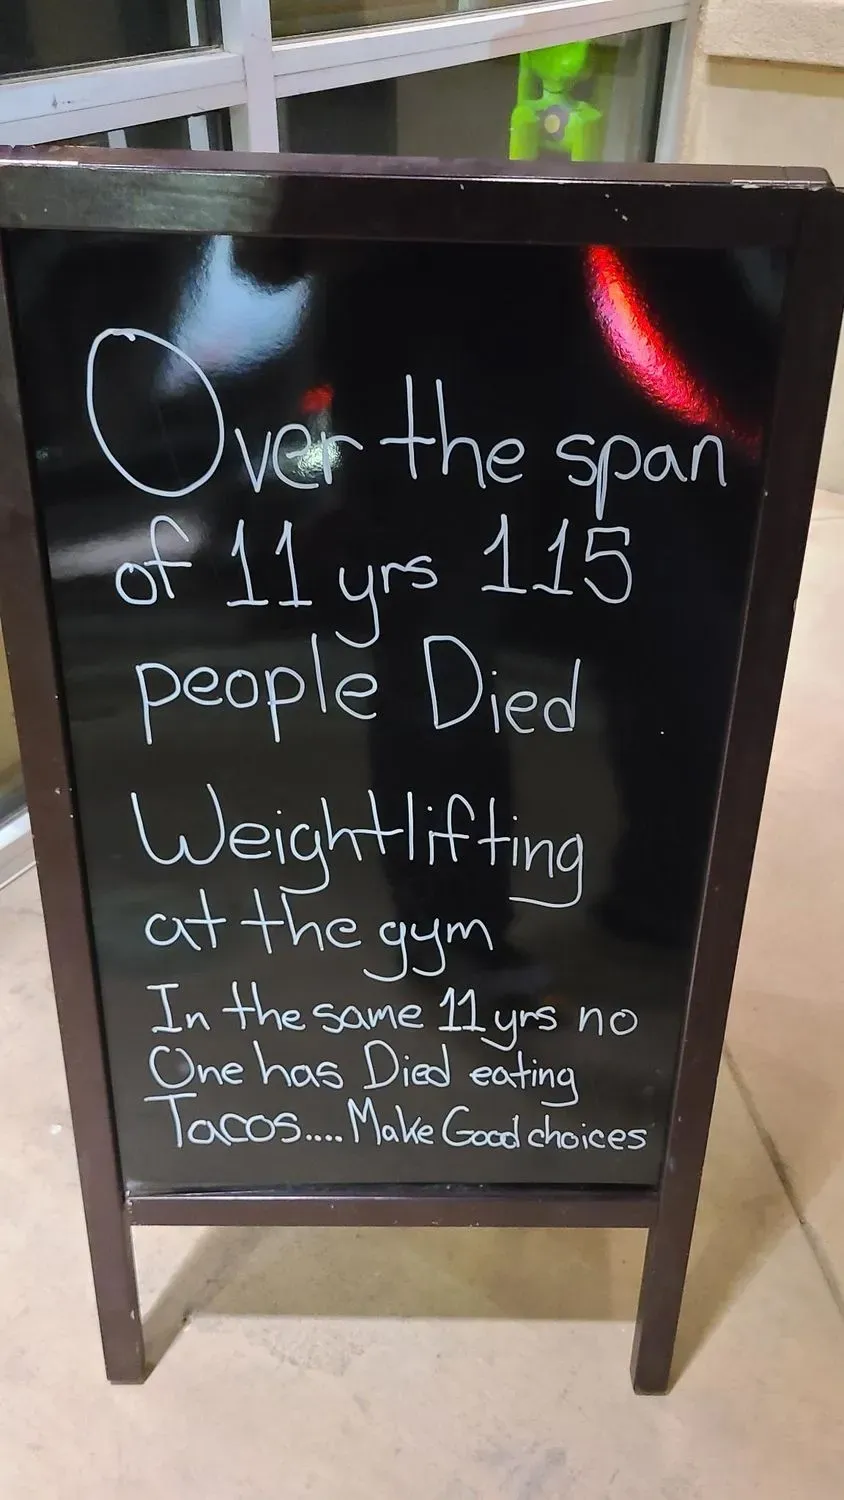 Over the span
of 11 yrs 115
people Died
Weightlifting
at the gym
In the same 11 yrs no
One has Died eating
Tacos.... Make Good choices